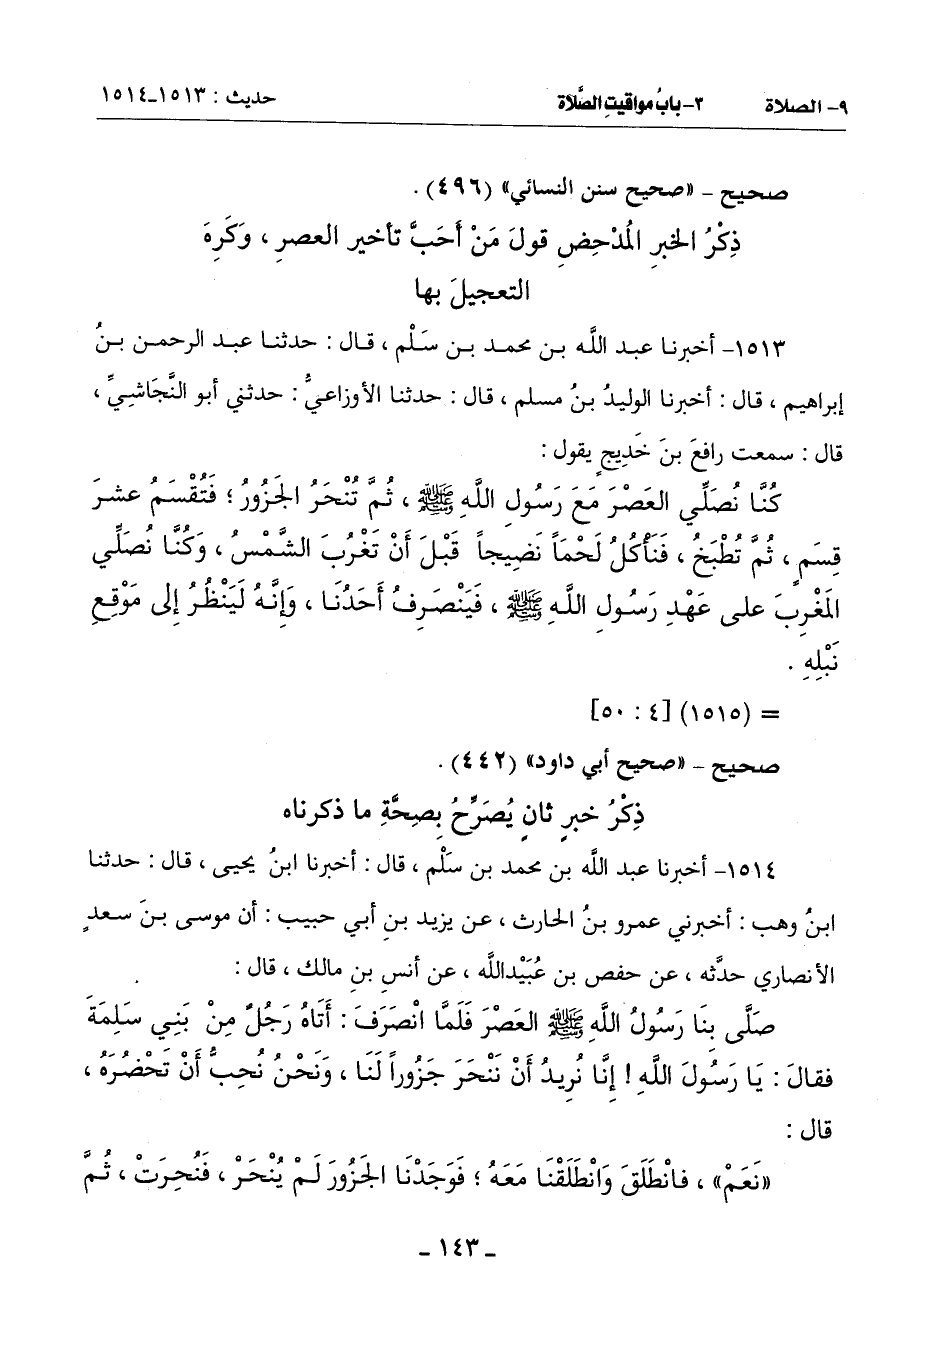 ٩- الصلاة ٣- بابُ مواقيتِ الصَّلاة حديث : ١٥١٣-١٥١٤
صحيح – «صحيح سنن النسائي» (٤٩٦) .
ذِكْرُ الخبرِ المُدْحِضِ قولَ مَنْ أَحَبَّ تأخير العصرِ ، وَكَرِهَ
التعجيلَ بها
١٥١٣- أخبرنا عبد اللَّه بن محمد بن سَلْم ، قال : حدثنا عبد الرحمن بنُ
إبراهيم ، قال : أخبرنا الوليدُ بنُ مسلم ، قال : حدثنا الأوزاعيُّ : حدثني أبو النَّجَاشِيِّ ،
قال : سمعت رافعَ بنَ خَدِيجٍ يقول :
كُنَّا نُصَلِّي العَصْرَ مَعَ رَسُولِ اللَّهِ ﷺ ، ثُمَّ تُنْحَرُ الجَزُورُ ؛ فَتُقْسَمُ عشرَ
قِسَمٍ ، ثُمَّ تُطْبَخُ ، فَنَأْكُلُ لَحْمَاً نَضِيجاً قَبْلَ أَنْ تَغْرُبَ الشَّمْسُ ، وَكُنَّا نُصَلِّي
المَغْرِبَ على عَهْدِ رَسُولِ اللَّهِ ﷺ ، فَيَنْصَرِفُ أَحَدُنَا ، وَإِنَّهُ لَيَنْظُرُ إلى مَوْقِعِ
نَبْلِهِ .
= (١٥١٥) [٤ : ٥٠]
صحيح – «صحيح أبي داود» (٤٤٢) .
ذِكْرُ خبرٍ ثانٍ يُصَرِّحُ بِصِحَّةِ ما ذكرناه
١٥١٤- أخبرنا عبد اللَّه بن محمد بن سَلْم ، قال : أخبرنا ابنُ يحيى ، قال : حدثنا
ابنُ وهب : أخبرني عمرو بنُ الحارث ، عن يزيد بنِ أبي حبيب : أن موسى بنَ سعدٍ
الأنصاري حدَّثه ، عن حفص بن عُبَيْداللَّه ، عن أنسِ بنِ مالك ، قال :
صَلَّى بِنَا رَسُولُ اللَّهِ ﷺ العَصْرَ فَلَمَّا انْصَرَفَ : أَتَاهُ رَجُلٌ مِنْ بَنِي سَلِمَةَ
فقالَ : يَا رَسُولَ اللَّهِ ! إِنَّا نُرِيدُ أَنْ نَنْحَرَ جَزُوراً لَنَا ، وَنَحْنُ نُحِبُّ أَنْ تَحْضُرَهُ ،
قال :
«نَعَمْ» ، فانْطَلَقَ وَانْطَلَقْنَا مَعَهُ ؛ فَوَجَدْنَا الجَزُورَ لَمْ يُنْحَرْ ، فَنُحِرَتْ ، ثُمَّ
- ١٤٣ -